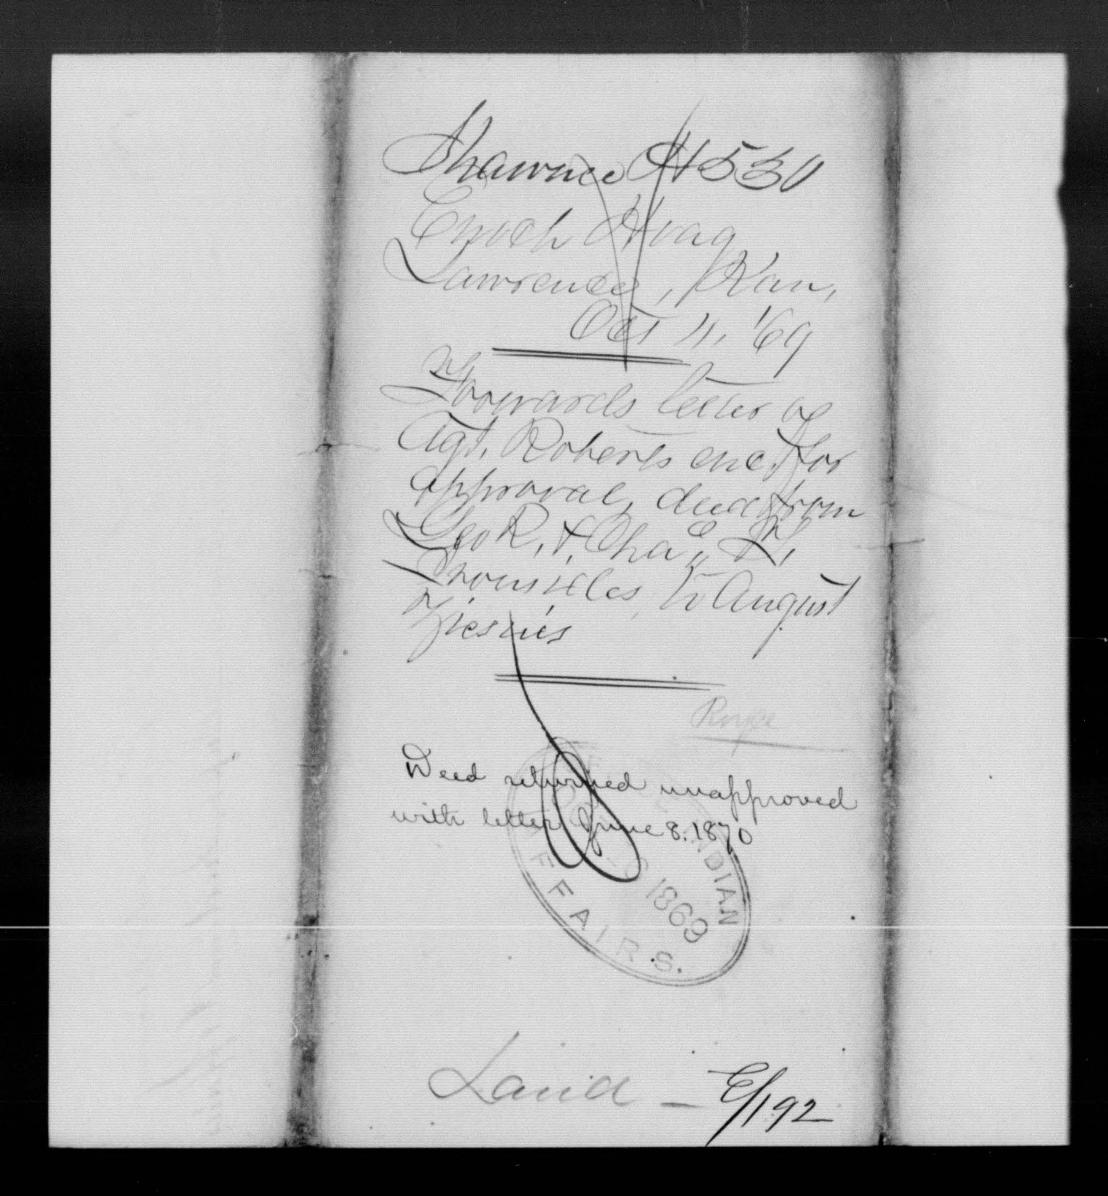 Shawnee H530
Enoch Hoag
Lawrence, Kan,
Oct 4, '69
Forwards letter of
Agt. Roberts enc. for
approval, deed from
Geo R. & Cha
to August
Deed returned unapproved
with letter June 8. 1870
INDIAN
1869
AFFAIRS.
Land - E/192